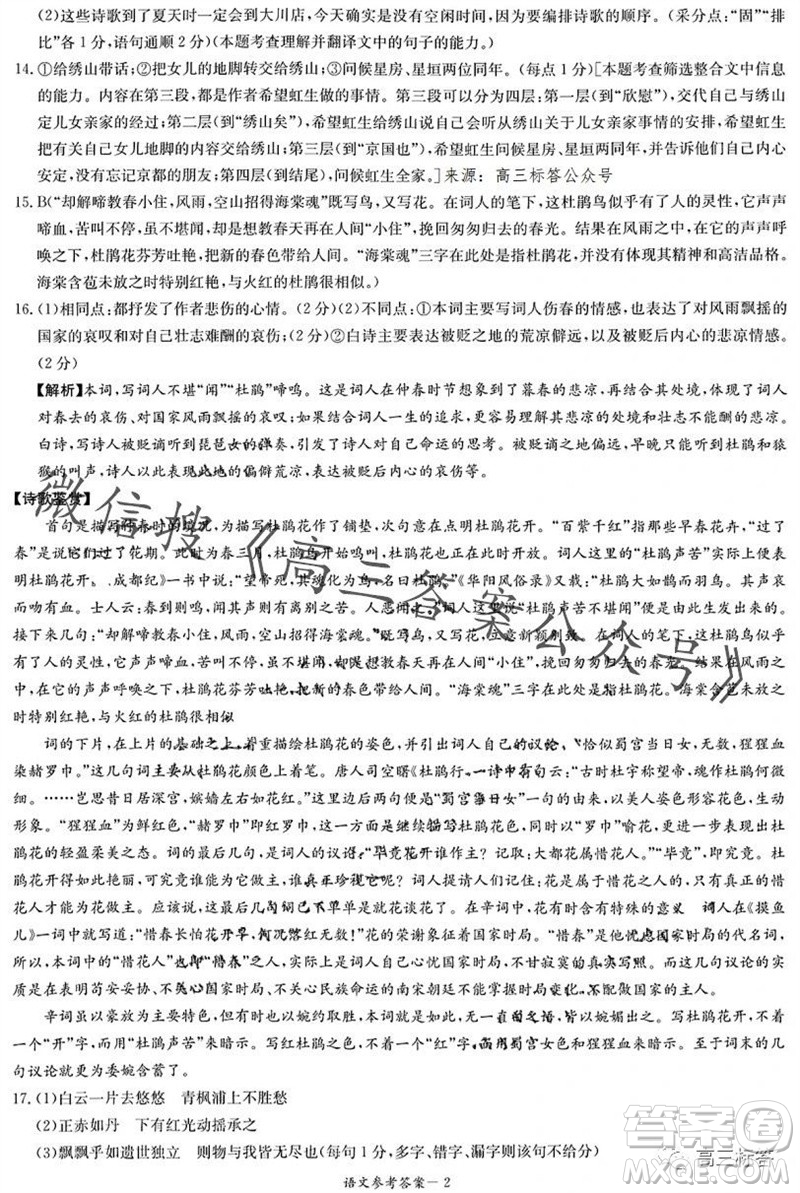 (2)这些诗歌到了夏天时一定会到大川店,今天如果没有空闲时间,也没有闲暇编排诗歌的顺序。(采分点:“固”“排
比”各1分,语句通顺2分)(本题考查理解并翻译文中的句子的能力。)
14.①给绣山带话;②把女儿的地脚转交给绣山;③问候星房、星垣两位同年。(每点1分)[本题考查筛选整合文中信息
的能力。内容在第三段,都是希望虹生做的事情。第三段可分为四层:第一层(到“欣慰”),交代自己与绣山
定儿女亲家的经过;第二层(到“绣山矣”),希望虹生给绣山说自己会听从绣山关于儿女亲家事情的安排,希望虹
生把女儿地脚的内容交给绣山;第三层(到“京国也”),希望虹生问候星房和星垣两同年,并告诉他们自己内心安
定,没有忘记京都的朋友;第四层(到结尾),问候虹生全家。]来源:高三标答公众号
15.B(“却解啼教春小住,风雨,空山招得海棠魂”既写鸟,又写花。在词人的笔下,这杜鹃鸟似乎有了人的灵性,它声声
啼血,苦叫不停,虽不堪闻,却是想教春天再在人间“小住”,挽回匆匆归去的春光。结果在风雨之中,在它的声声呼
唤之下,杜鹃花芬芳吐艳,把新的春色带给人间。“海棠魂”三字在此处是指杜鹃花,也体现出其精神和高洁品格。
海棠含苞未放之时特别红艳,与火红的杜鹃很相似。)
16.(1)相同点:都抒发了作者悲伤的心情。(2分)(2)不同点:①本词主要写词人伤春的情感,也表达了对风雨飘摇的
国家的哀叹和对自己壮志难酬的哀伤;(2分)②白诗主要表达被贬之地的荒凉僻远,以及被贬后内心的悲凉情感。
(2分)
【解析】本词,写词人不堪“闻”“杜鹃”啼鸣。这是词人在仲春时节想象到了暮春的悲凉,再结合其处境,体现了词人
对春去的哀伤、对国家风雨飘摇的哀叹;如果结合词人一生的追求,更写出了自己悲凉的处境和壮志不能酬的悲凉。
白诗,写诗人被贬,通过听到琵琶女的弹奏,引发了诗人对自己命运的思考。被贬之地偏远,早晚只能听到杜鹃和猿
猴的叫声,诗人以此表现此地的偏僻荒凉,表达被贬后内心的哀伤等。
【诗歌鉴赏】
首句是描写仲春时的境况,为描写杜鹃花作了铺垫,次句意在点明杜鹃花开。“百紫千红”指其他早春花卉,“过了
春”是说它们过了花期。此时春三月,杜鹃鸟开始鸣叫,杜鹃花便进入盛开之时。词人这里写“杜鹃声苦”实际上便表
明杜鹃花开。《成都纪》一书说:“望帝死,其魂化为鸟,名曰杜鹃。”《华阳风俗录》又载:“杜鹃大如鹊而羽乌。其声哀
而吻血。土人云:春至则鸣,闻其初声则有离别之苦。人皆恶闻之。”词人这里说“杜鹃声苦不堪闻”即是由此而来。
接下来几句:“却解啼教春小住,风雨,空山招得海棠魂。”既写鸟,又写花,立意新颖别致。在词人的笔下,这杜鹃鸟似乎有
了人的灵性,它声声啼血,苦叫不停,虽不堪闻,却是想教春天再在人间“小住”,挽回匆匆归去的春光。结果在风雨之中,
在它的声声呼唤之下,杜鹃花芬芳吐艳,把新的春色带给人间。“海棠魂”三字在此处是指杜鹃花。海棠含苞未放之
时特别红艳,与火红的杜鹃很相似
词的下片,在上片的基础之上,着重描绘杜鹃花的姿色,并引出词人自己的议论,“恰似蜀宫当日女,无数,猩猩血
染赭罗巾。”这几句词从杜鹃花颜色上着笔。唐人司空曙《杜鹃行》一诗中有句云:“古时杜宇称望帝,魂作杜鹃何微
细。……岂思昔日居深宫,嫔嫱左右如花红。”这里边又写鸟又写花,这便是“蜀宫当日女”一句的由来,以美人姿色形容花色,生动
形象。“猩猩血”为鲜红色,“赭罗巾”即红罗巾,这一方面是继续描写杜鹃花的颜色,同时又用“罗巾”喻花,更表现出杜
鹃花的轻盈柔美之态。词的最后几句,是词人的议论:“毕竟花开谁作主?记取:大都花属惜花人。”“毕竟”,即究竟。杜
鹃花开得艳丽,究竟谁能为它做主,谁真正珍视它呢? 词人提醒人们:记住,花大抵属于那些惜花之人,只有真正的惜
花人才能为花做主。应该说,这最后几句已不单单是就花谈花了。在辛词中,花有时含有特殊的意义 词人在《摸鱼
儿》一词中说:“惜春长怕花开早,何况落红无数!”花的荣谢象征着国家时局。“惜春”是他忧虑国家时局的代名词,所
以,本词中的“惜花人”应该和“惜春”之人一样,是指那些忧虑国家时局,不甘寂寞的真实写照。词人从花开花谢中,
表达对苟安妥协、不关心国家时局、不关心民族命运的南宋朝廷不满,只有关心国家时局的人才是国家的主人。
辛词虽以豪放为主要特色,但有时也以婉约取胜,本词就是如此,无一直白之语,皆以婉媚出之。写杜鹃花开,不
着一个“开”字,而以杜鹃声苦来作暗示。写杜鹃花红,不着一个“红”字,而以蜀宫女色和猩猩血来作暗示。至于词末的几
句议论就更为委婉含蓄了。
17.(1)白云一片去悠悠 青枫浦上不胜愁
(2)正赤如丹 下有红光动摇承之
(3)飘飘乎如遗世独立 则物与我皆无尽也(每句1分,多字、错字、漏字则该句不给分)
语文参考答案-2
微信搜《高三答案公众号》
高三标答
答案圈
MXQE.COM